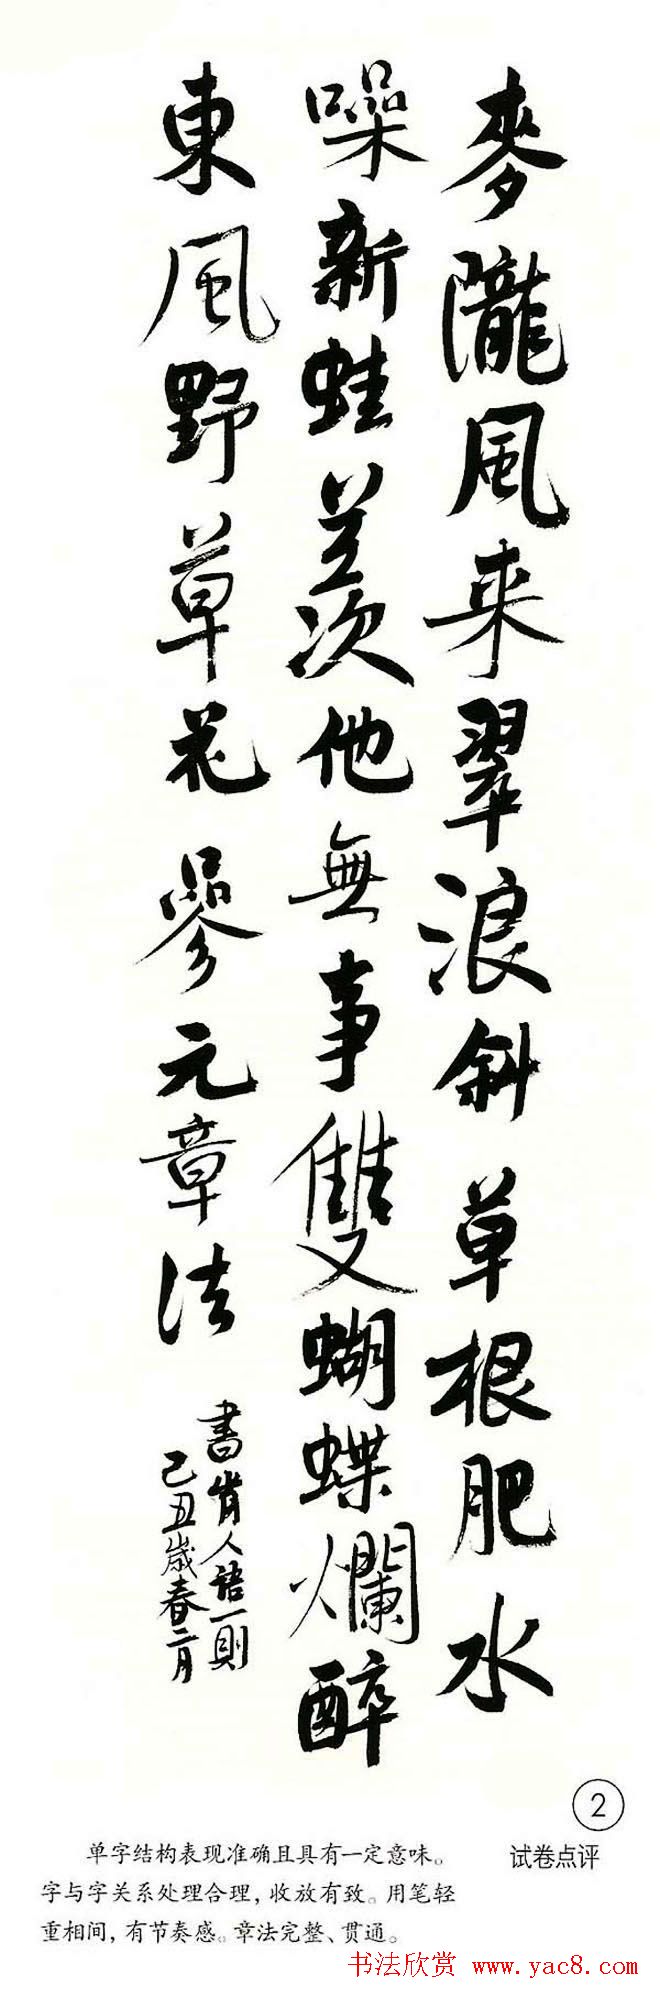 麥隴風来翠浪斜草根肥水
噪新蛙羨他無事雙蝴蝶爛醉
東風野草花參元章法
書肯人語一則
己丑歲春二月
2
试卷点评
单字结构表现准确且具有一定意味。
字与字关系处理合理，收放有致。用笔轻
重相间，有节奏感。章法完整、贯通。
书法欣赏 www.yac8.com